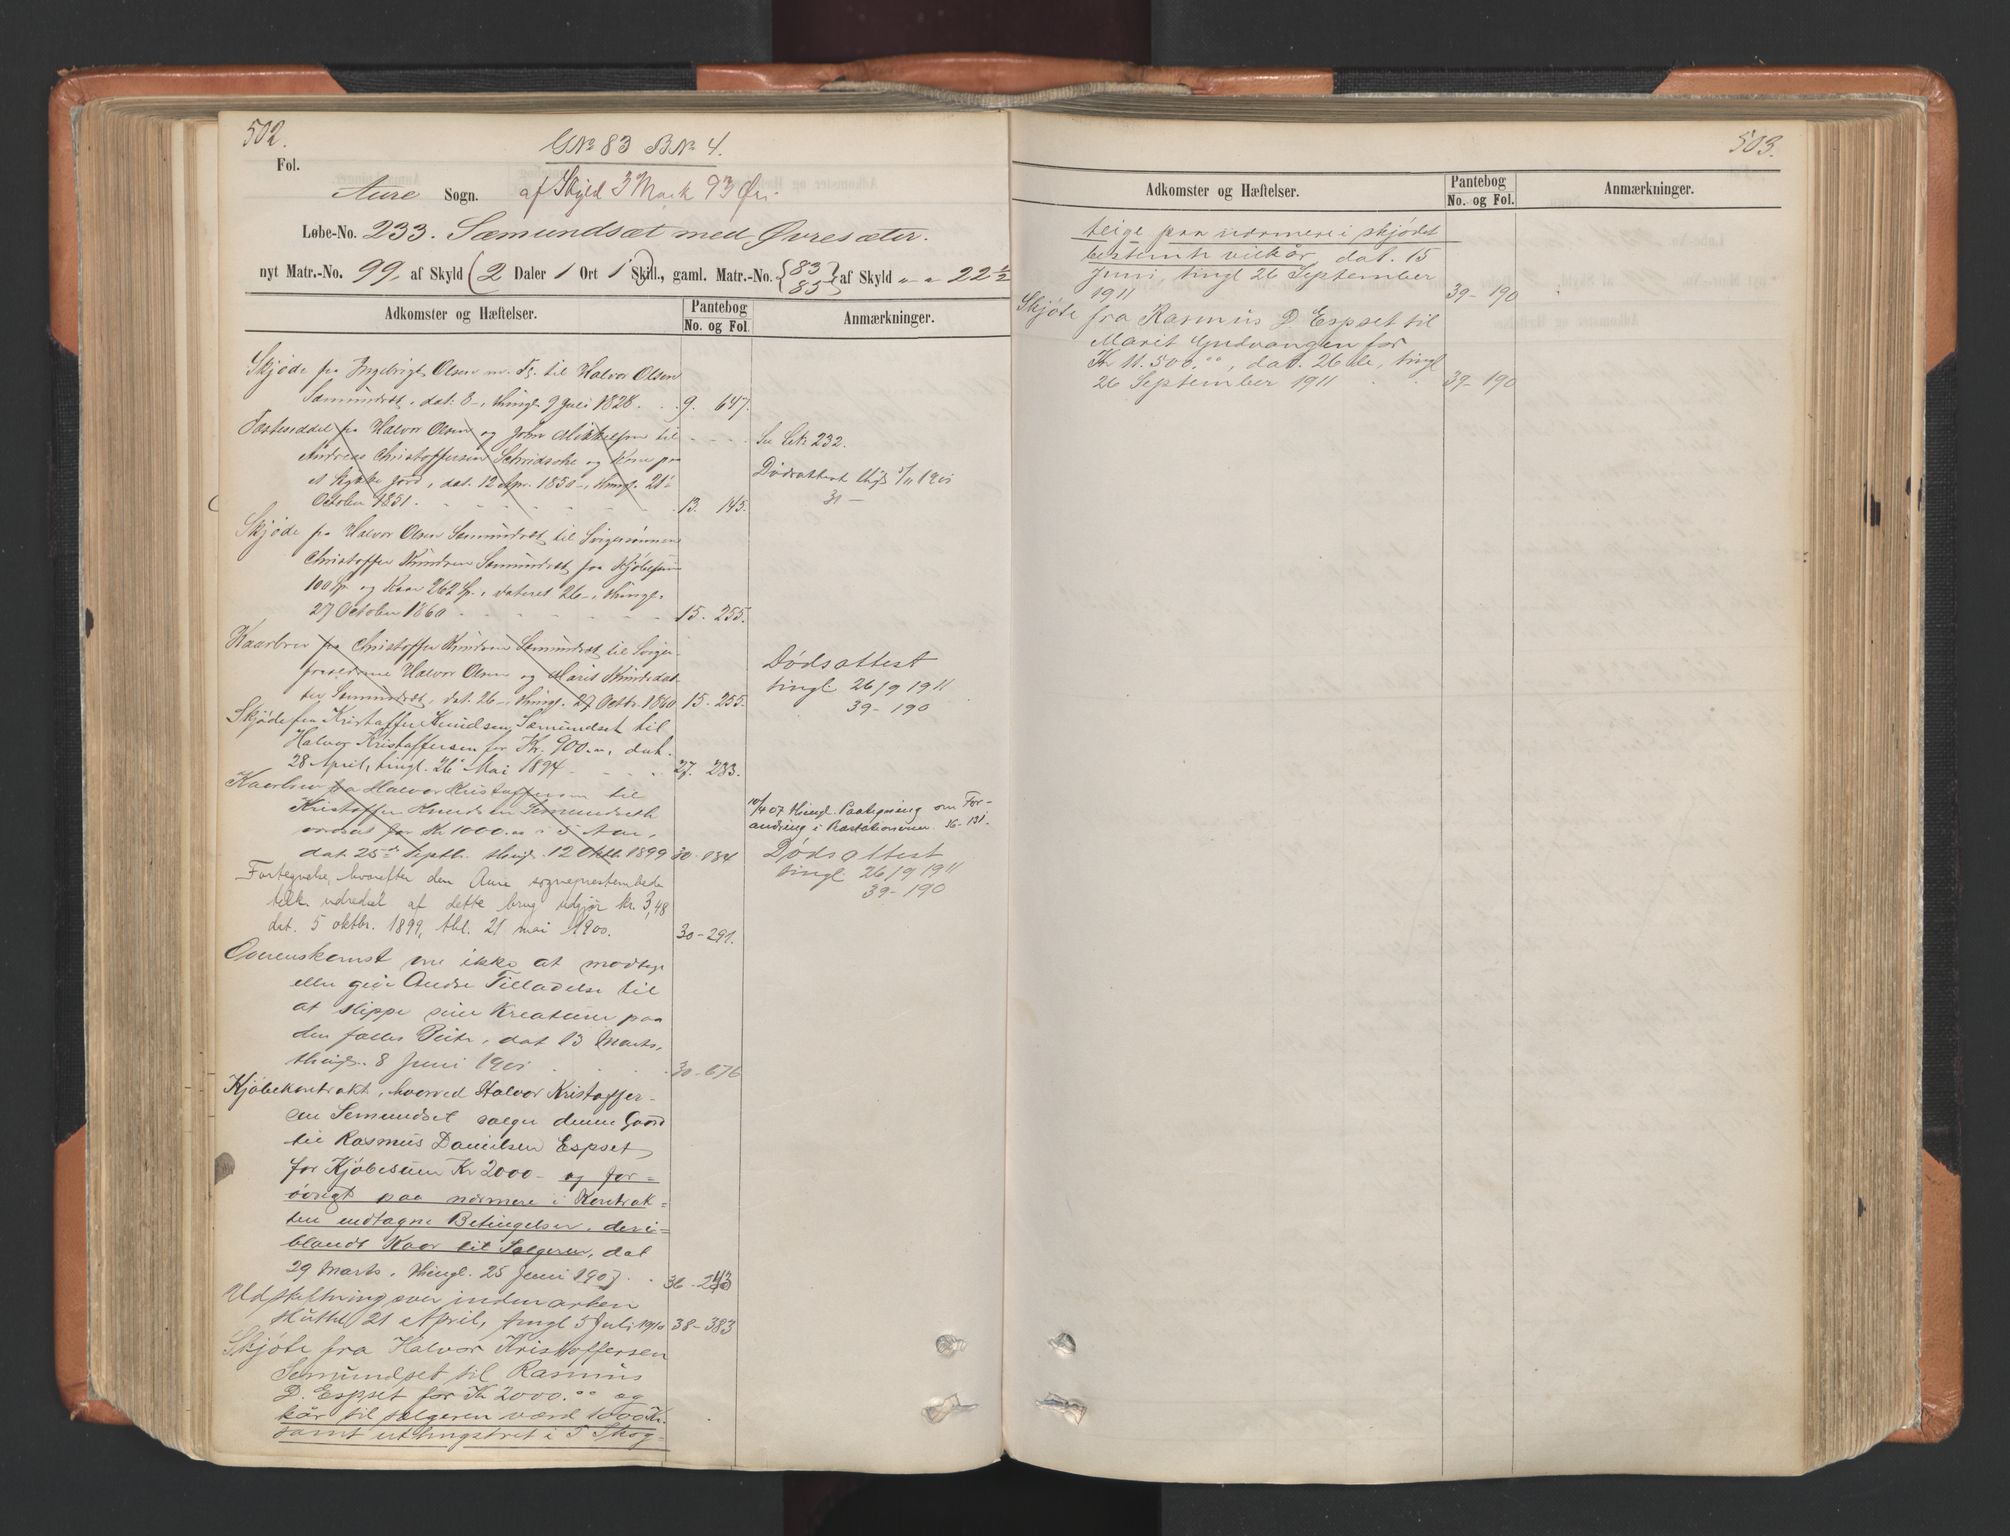 502.
GNo 83 BNo 4.
Fol.
Aure Sogn. af Skyld 3 Mark 93 Øre
Løbe-No. 233. Sæmundsæt med Øvresæter.
nyt Matr.-No. 99, af Skyld (2 Daler 1 Ort 1) Skill., gaml. Matr.-No. {83 85} af Skyld " - " 22 1/2
Adkomster og Hæftelser. Pantebog No. og Fol. Anmærkninger.
Skjøde fra Ingebrigt Olsen m. fl. til Halvor Olsen
Sæmundsæt, dat: 8-, thingl. 9 Juli 1828. 9. 647.
Fæsteseddel fra Halvor Olsen og John Mikkelsen til Se Lb. 232.
Andreas Christoffersen og Kone paa
et Stykke Jord, dat. 12 Apr. 1850-, thingl. 21de Dødsattest thgl. 5/11 1901
October 1851. 13. 145. 31-
Skjøde fra Halvor Olsen Sæmundsæt til Svigersønnen
Christoffer Knudsen Sæmundsæt for Kjøbesum
100 Sp. og Kaar 262 Sp., dateret 26-, thingl.
27 October 1860 15. 255.
Kaarbrev fra Christoffer Knudsen Sæmundsæt til Sviger-
forældrene Halvor Olsen og Marit Knudsdat- Dødsattest
ter Sæmundsæt, dat. 26-, thingl. 27 Octbr. 1860 15. 255. tingl. 26/9 1911
39-190
Skjøde fra Kristoffer Knudsen Sæmundset til
Halvor Kristoffersen for Kr. 900.", dat.
28 April, tingl. 26 Mai 1894 27. 233.
Kaarbrev fra Halvor Kristoffersen til
Kristoffer Knudsen Semundseth 10/4 07 thingl. Paategning om For-
ansat for Kr 1000.00 i 5 Aar, andring i Præstationerne. 36-131.
dat. 25de Septb. thingl. 12 Oktbr. 1899 30-184 Dødsattest
tingl 26/9 1911
39-190
Fortegnelse, hvorefter den Aure sogneprestembede
tilk. udredsel af dette brug udgjør kr. 3,48
dat. 5 oktbr. 1899, thl. 21 mai 1900. 30-291.
Overenskomst om ikke at modtage
eller give Andre Tilladelse til
at slippe sine Kreaturer paa
den fælles Beite, dat 13 Marts,
thingl. 8 Juni 1901 30-676
Kjøbekontrakt, hvorved Halvor Kristoffer-
sen Semundset sælger denne Gaard
til Rasmus Danielsen Espset
for Kjøbesum Kr 2000- og for-
øvrigt paa nærmere i Kontrak-
ten indtagne Betingelser, deri-
blandt Kaar til Sælgeren, dat
29 Marts, thingl. 25 Juni 1907. 36-243
Udskiftning over indmarken
sluttet 21 April, tingl 5 Juli 1910 38-383
Skjøte fra Halvor Kristoffersen
Semundset til Rasmus
D. Espset for Kr 2000.00 og
kår til sælgeren værd 1000 Kr.
samt utlingstret i 5 Skog-
503.
Adkomster og Hæftelser. Pantebog No. og Fol. Anmærkninger.
teige paa nærmere i skjødet
bestemte vilkår, dat. 15
Juni, tingl 26 September
1911 39-190
Skjøte fra Rasmus D. Espset til
Marit Gudvangen for
Kr 11.500.00, dat. 26de, tingl
26 September 1911 39-190